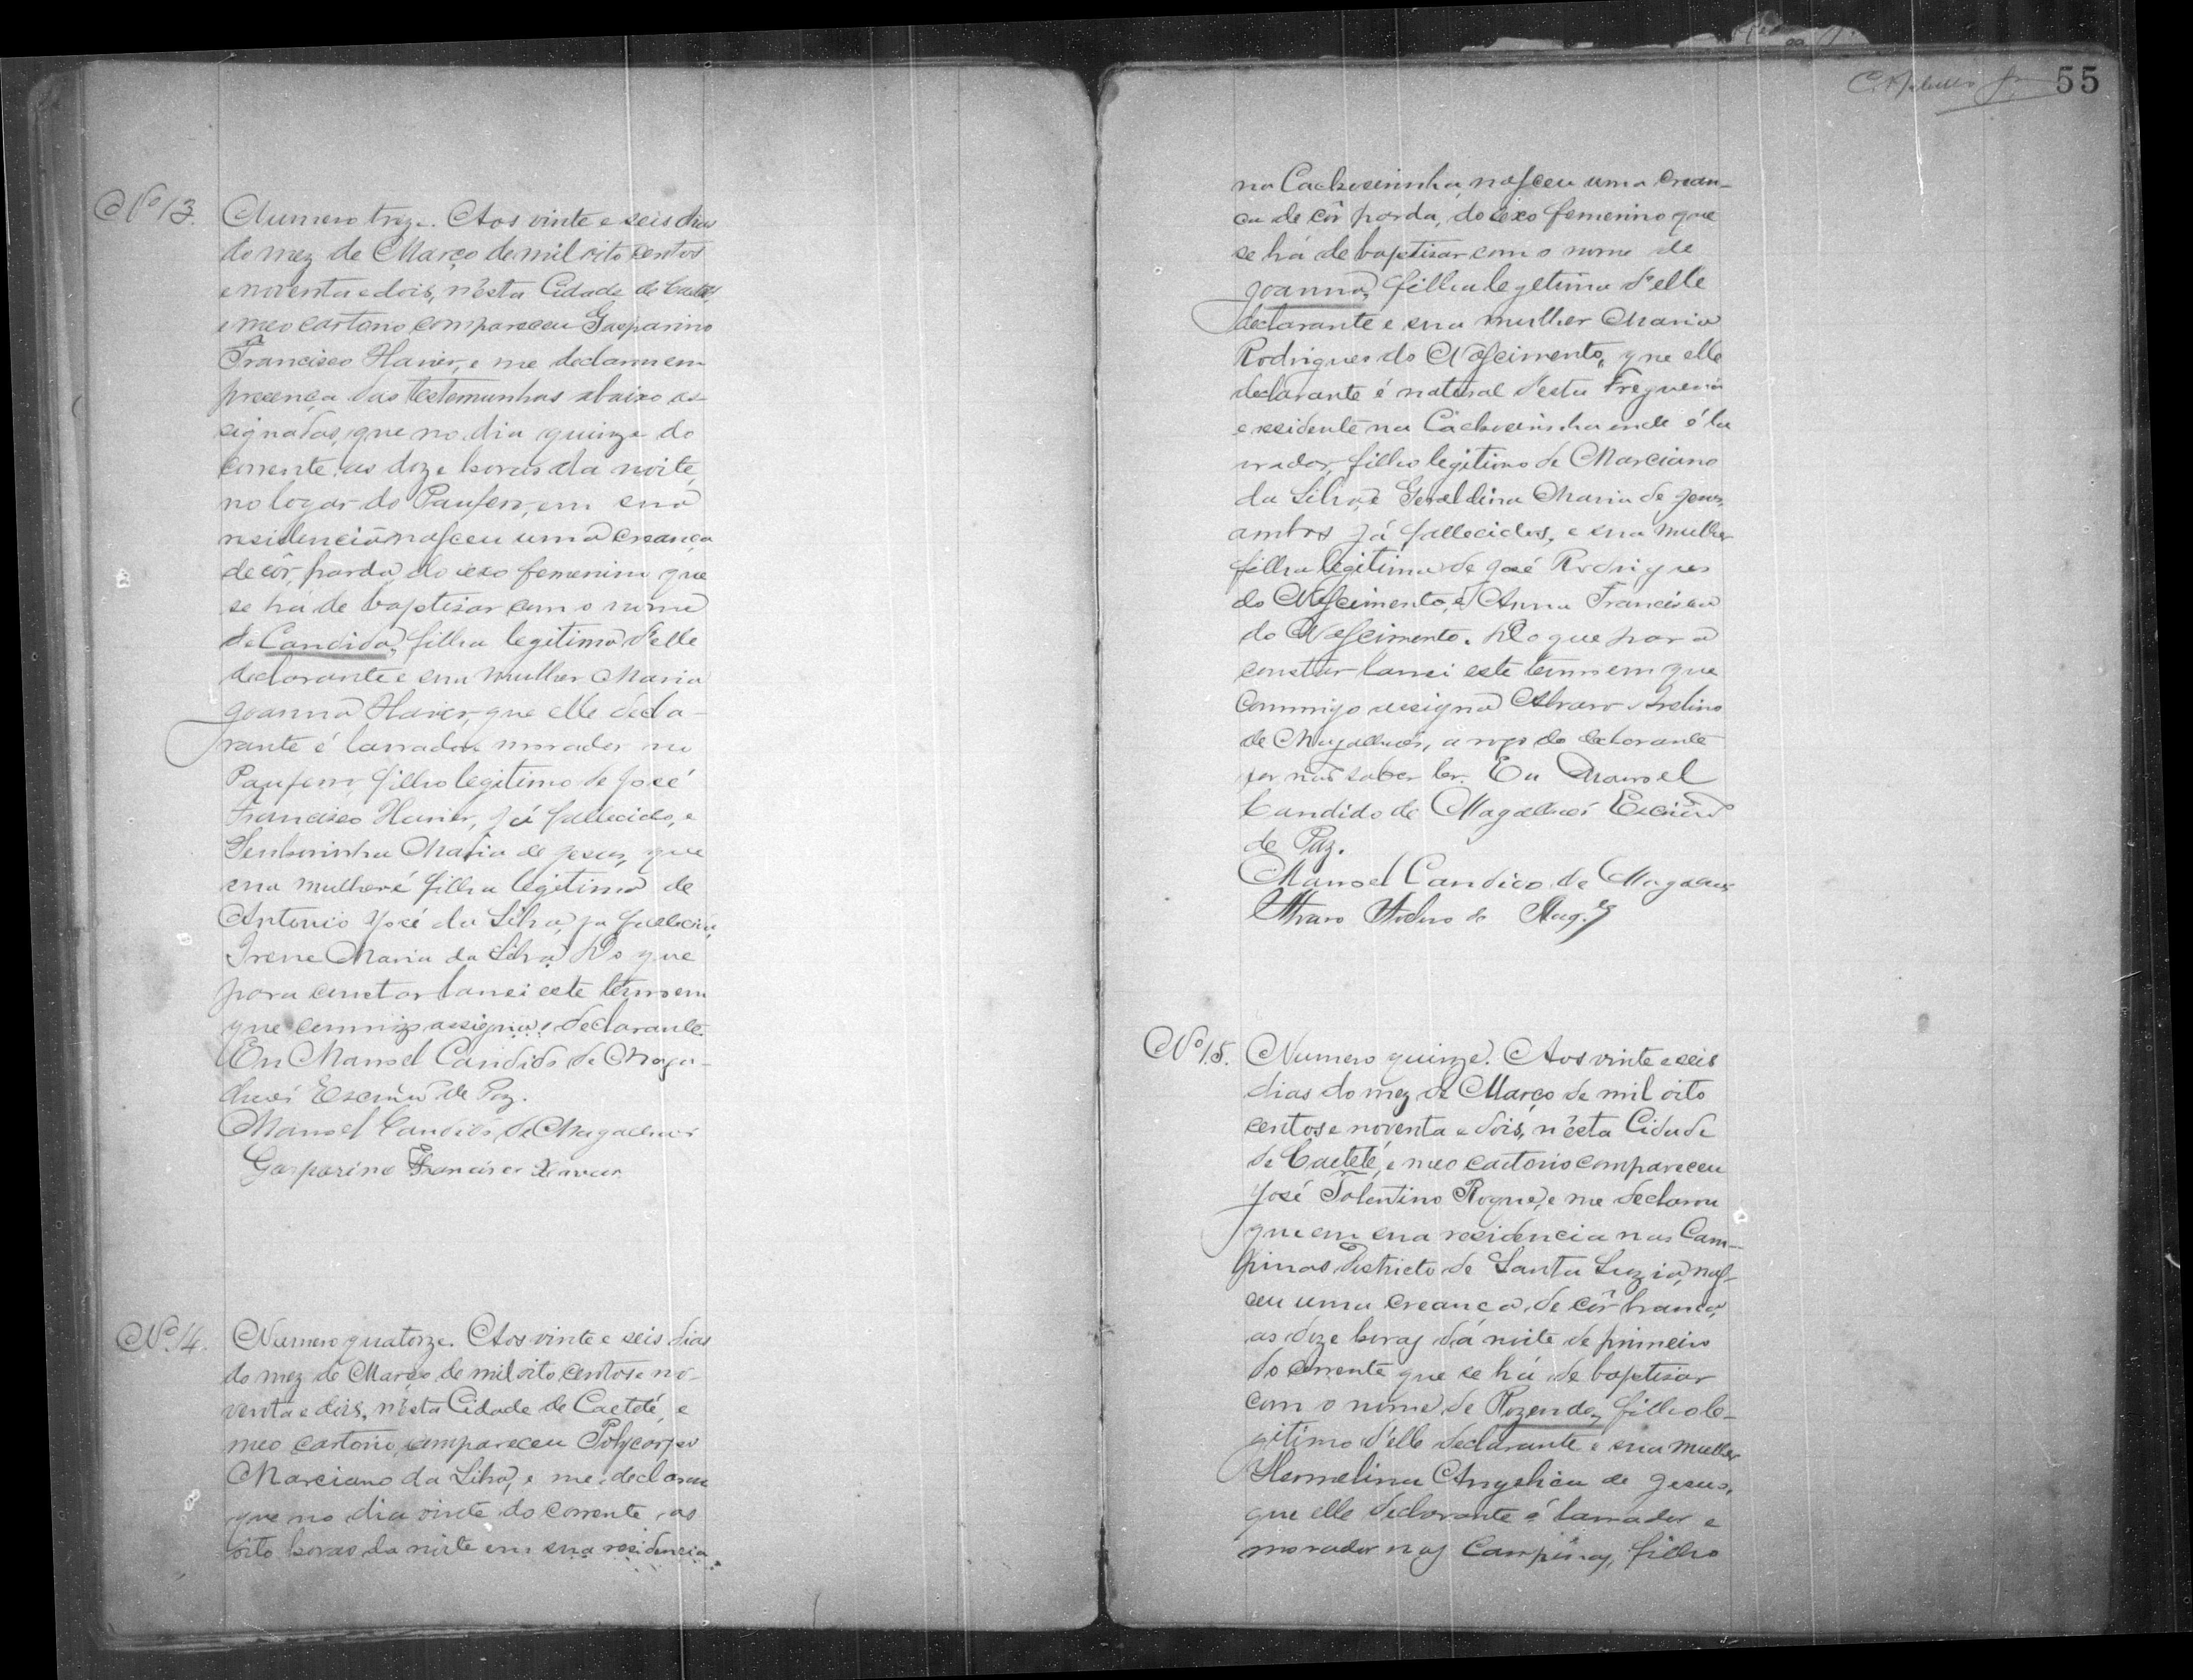 Nº 13. Numero treze. Aos vinte e seis dias
do mez de Março de mil oito centos
e noventa e dois, n'esta Cidade de Caeteté
e meo cartorio compareceu Gasparino
Francisco Havier, e me declarou em
presença das testemunhas abaixo as-
signadas, que no dia quinze do
corrente, as doze horas da noite,
no logar do Pauferro, em sua
residencia nasceu uma creança
de côr parda, do sexo femenino que
se há de baptisar com o nome
de Candida, filha legitima d'elle
declarante e sua mulher Maria
Joanna Havier, que elle decla-
rante é lavrador morador no
Pauferro, filho legitimo de José
Francisco Havier, já fallecido, e
Senhorinha Maria de Jesus, que
sua mulher é filha legitima de
Antonio José da Silva, ja fallecido,
Irene Maria da Silva. Do que
para constar lansei este termo em
que commigo assigna o declarante.
Eu Manoel Candido de Maga-
lhaes Escrivão de Paz.
Manoel Candido de Magalhaes
Gasparino Francisco Xavier
Nº 14. Numero quatorze. Aos vinte e seis dias
do mez de Março de mil oito centos e no-
venta e dois, n'esta Cidade de Caeteté, e
meo cartorio compareceu Polycarpo
Marciano da Silva, e me declarou
que no dia vinte do corrente, as
oito horas da noite em sua residencia
55
na Cachoeirinha, nasceu uma crean-
ca de côr parda, do sexo femenino que
se há de baptisar com o nome de
Joanna, filha legetima d'elle
declarante e sua mulher Maria
Rodrigues do Nascimento, que elle
declarante é natural desta Freguesia
e residente na Cachoeirinha onde é la
vrador, filho legitimo de Marciano
da Silva, e Geraldina Maria de Jesus,
ambos já fallecidos, e sua mulher
filha legitima de José Rodrigues
do Nascimento, e Anna Francisca
do Nascimento. Do que para
constar lansei este termo em que
commigo assigna Alvaro Avelino
de Magalhaes, a rogo do declarante
por não saber ler. Eu Manoel
Candido de Magalhaes Escrivão
de Paz.
Manoel Candido de Magalhaes
Alvaro Avelino de Mag.es
Nº 15. Numero quinze. Aos vinte e seis
dias do mez de Março de mil oito
centos e noventa e dois, n'esta Cidade
de Caeteté, e meo cartorio compareceu
José Tolentino Roque, e me declarou
que em sua residencia nas Cam-
pinas Districto de Santa Luzia, nas-
ceu uma creança, de côr branca,
as doze horas da noite de primeiro
do corrente que se há de baptisar
com o nome de Rozendo, filho le-
gitimo d'elle declarante e sua mulher
Hermelina Angelica de Jesus,
que elle declarante é lavrador e
morador nas Campinas, filho